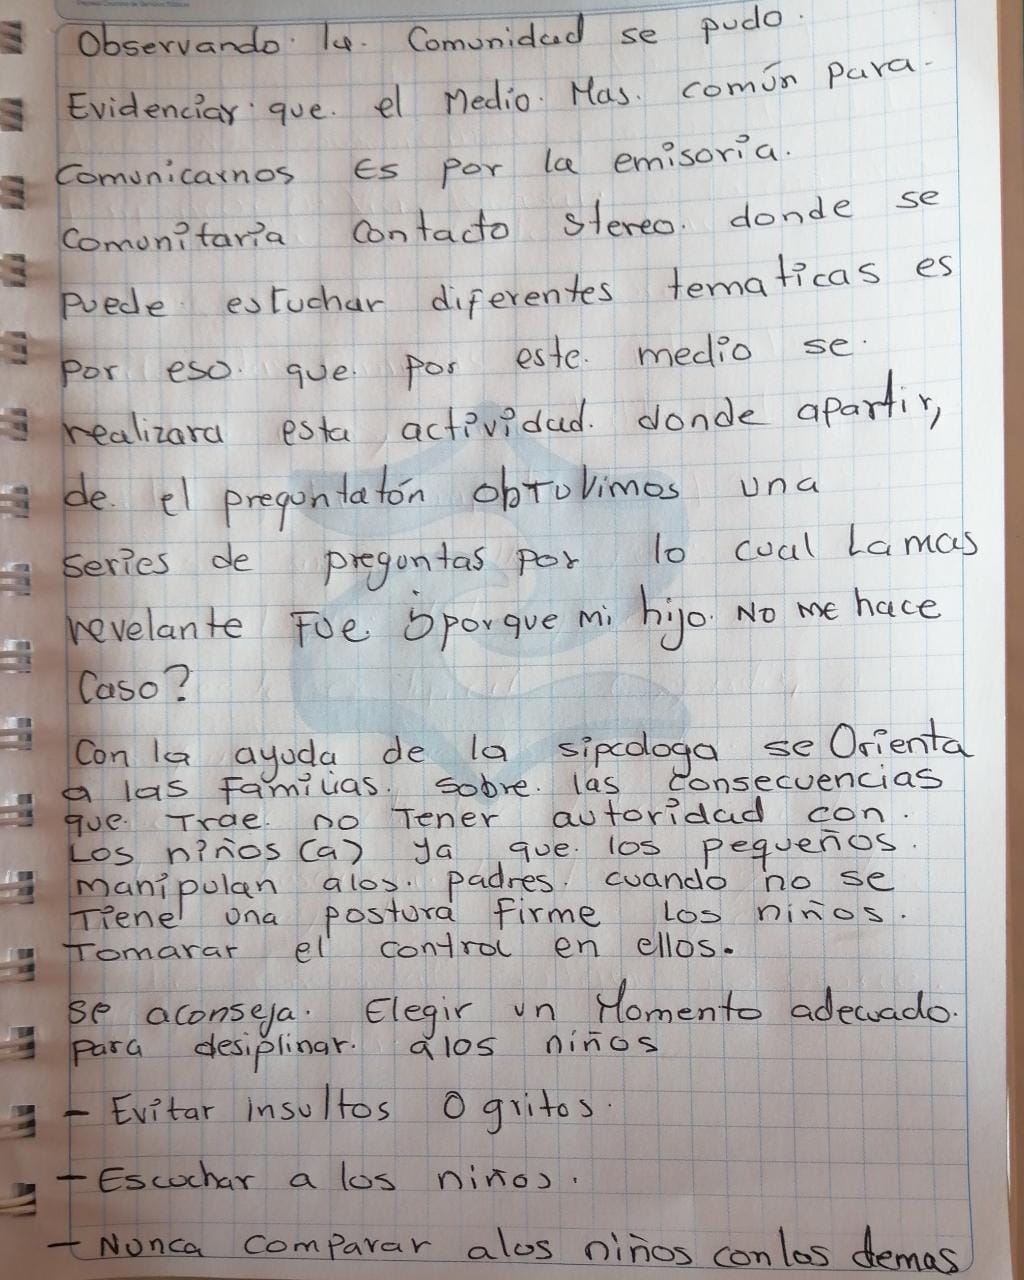 Observando la Comunidad se pudo.
Evidenciar que. el Medio. Mas. común para-
Comunicarnos Es por la emisoria.
Comunitaria Contacto Stereo. donde se
puede escuchar diferentes tematicas es
por eso. que. por este. medio se.
realizara esta actividad. donde apartir,
de. el preguntatón obtuvimos una
series de preguntas por lo cual La mas
revelante Fue. ¿porque mi hijo. No me hace
Caso?
Con la ayuda de la sipcologa se Orienta
a las Familias. sobre. las consecuencias
que. Trae. no Tener autoridad con.
Los niños (a) ya que. los pequeños.
manipulan alos. padres. cuando no se
Tiene una postura firme Los niños.
Tomarar el control en ellos.
se aconseja. Elegir un Momento adecuado.
para desiplinar. a los niños
- Evitar insultos O gritos.
- Escuchar a los niños.
- Nunca comparar alos niños con los demas